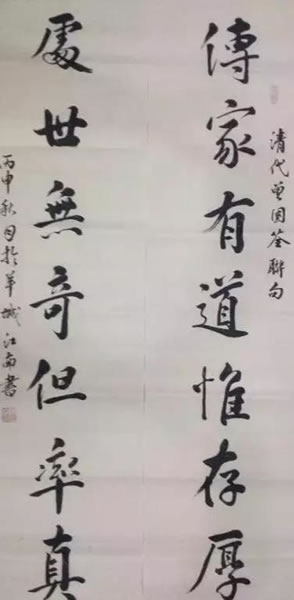 清代曾国荃聯句
傳家有道惟存厚
處世無奇但率真
丙申秋月於羊城江南書